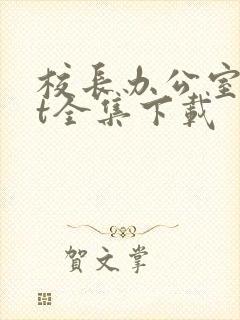 校長办公室
t全集下載
賀文掌